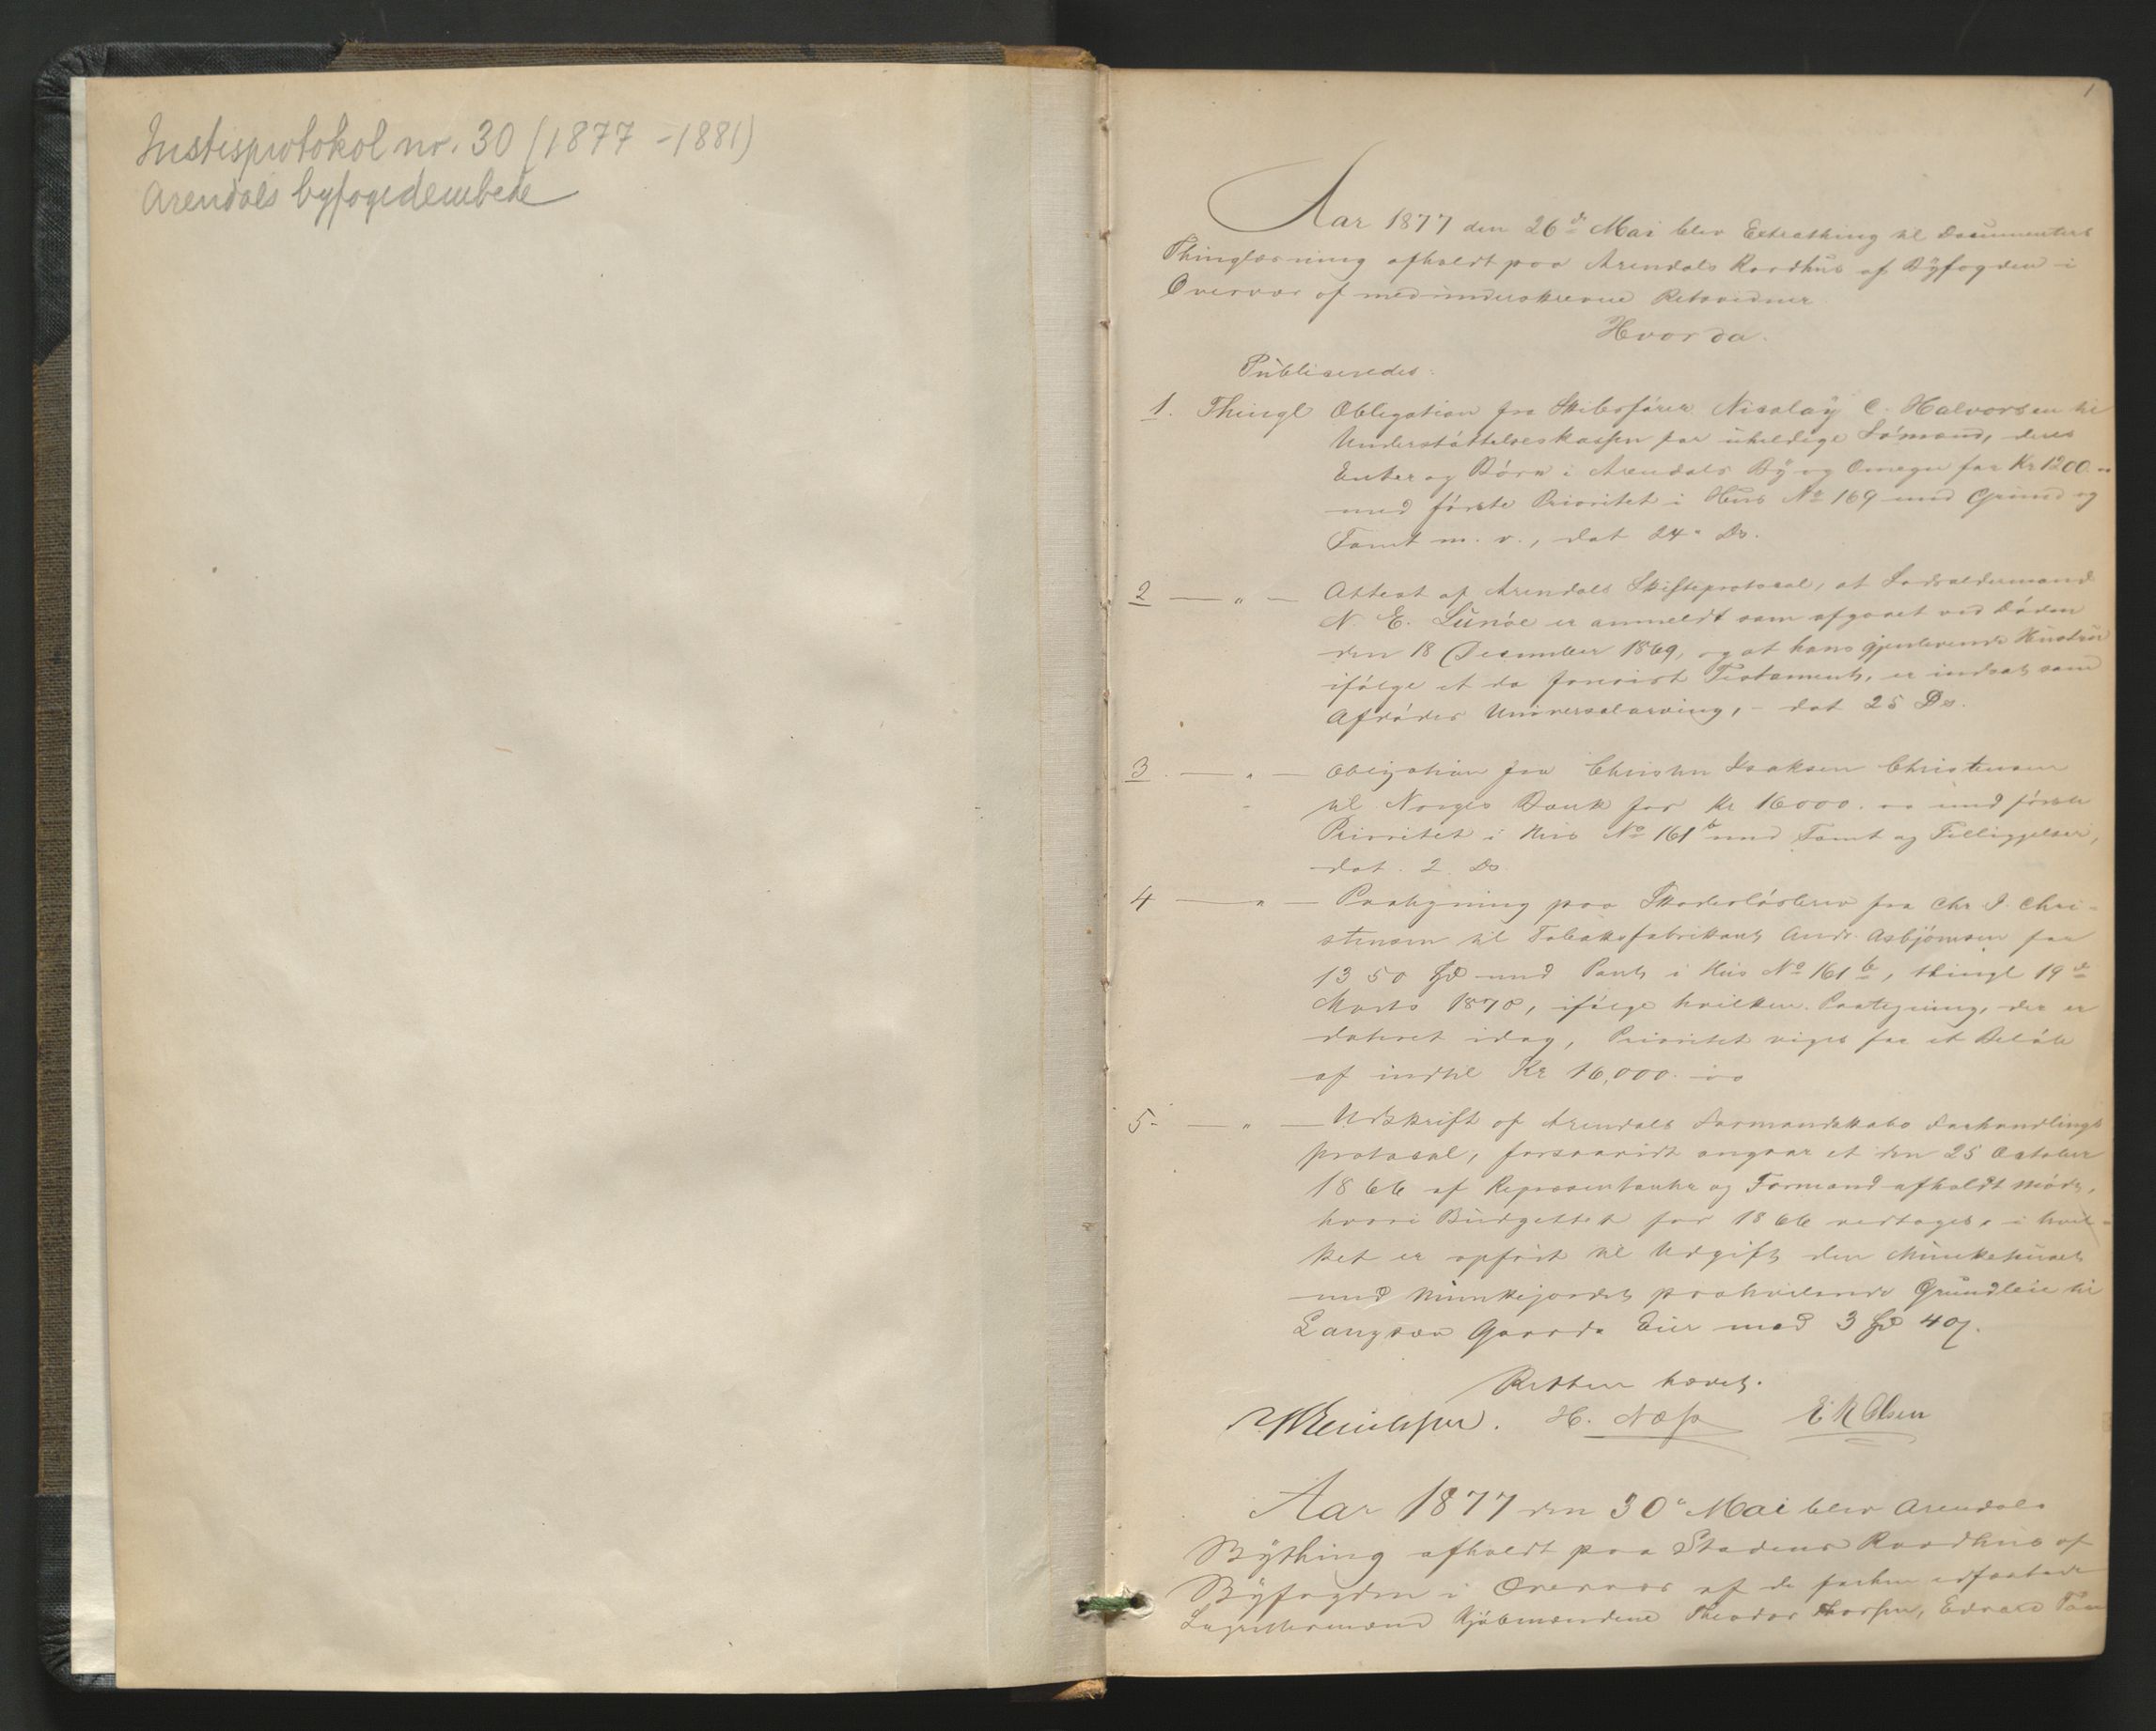 Justisprotokol nr. 30 (1877 - 1881)
Arendals byfogedembede
1
Aar 1877 den 26de Mai blev Extrathing til Documenters
Thinglæsning afholdt paa Arendals Raadhus af Byfogden i
Overvær af medunderskrevne Retsvidner
Hvor da.
Publiceredes:
1. Thingl Obligation fra Skibsfører Nicolay C. Halvorsen til
Understøttelseskassen for uheldige Sømænd, deres
Enker og Børn i Arendals By og Omegn for Kr 1200 "
med første Prioritet i Hus No 169 med Grund og
Tomt m. v., dat 24" Ds.
2 — " — Attest af Arendals Skifteprotocol, at Lodsoldermand
N E. Lunøe er anmeldt som afgaaet ved Døden
den 18 December 1869, og at hans gjenlevende Hustru
ifølge et da forevist Testament, er indsat som
Afdødes Universalarving, - dat 25 Ds.
3. — " — Obligation fra Christen Isaksen Christensen
til Norges Bank for Kr 16000. oo med første
Prioritet i Hus No 161 b med Tomt og Tilliggelser,
dat. 2 Ds
4 — " — Paategning paa Skadesløsbrev fra Chr I. Chri-
stensen til Tobaksfabrikant Andr. Asbjørnsen for
1350 Spd med Pant i Hus No 161 b, thingl 19de
Marts 1870, ifølge hvilken Paategning, der er
dateret idag, Prioritet viges for et Beløb
af indtil Kr 16,000. oo
5- — " — Udskrift af Arendals Formandskabs Forhandlings
protocol, forsaavidt angaar et den 25 October
1866 af Repræsentanter og Formænd afholdt Møde,
hvori Budgettet for 1866 vedtoges, i hvil-
ket er opført til Udgift den Munkehuset
med Munkejordet paahvilende Grundleie til
Langsæ Gaards Eier med 3 Spd 40ß.
Retten hævet.
H. Næss E. K Olsen
Aar 1877 den 30" Mai blev Arendals
Bything afholdt paa Stadens Raadhus af
Byfogden i Overvær af de
Lagrettesmænd Kjøbmændene Theodor Thorsen, Edvard